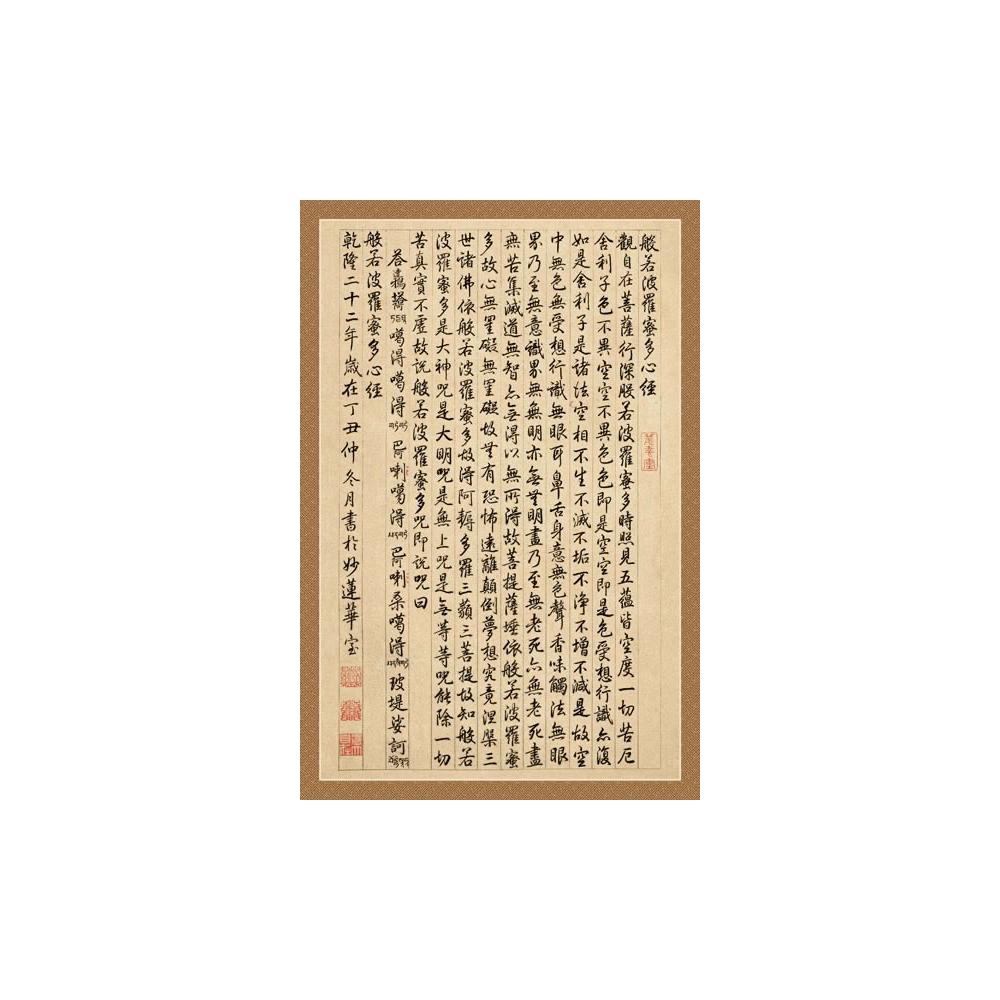 般若波羅蜜多心經
觀自在菩薩行深般若波羅蜜多時照見五蘊皆空度一切苦厄
舍利子色不異空空不異色色即是空空即是色受想行識亦復
如是舍利子是諸法空相不生不滅不垢不淨不增不減是故空
中無色無受想行識無眼耳鼻舌身意無色聲香味觸法無眼
界乃至無意識界無無明亦無無明盡乃至無老死亦無老死盡
無苦集滅道無智亦無得以無所得故菩提薩埵依般若波羅蜜
多故心無罣礙無罣礙故無有恐怖遠離顛倒夢想究竟涅槃三
世諸佛依般若波羅蜜多故得阿耨多羅三藐三菩提故知般若
波羅蜜多是大神呪是大明呪是無上呪是無等等呪能除一切
苦真實不虛故說般若波羅蜜多呪即說呪曰
噶得噶得 喇噶得 喇桑噶得 玻堤娑訶
般若波羅蜜多心經
乾隆二十二年歲在丁丑仲冬月書於妙蓮華室